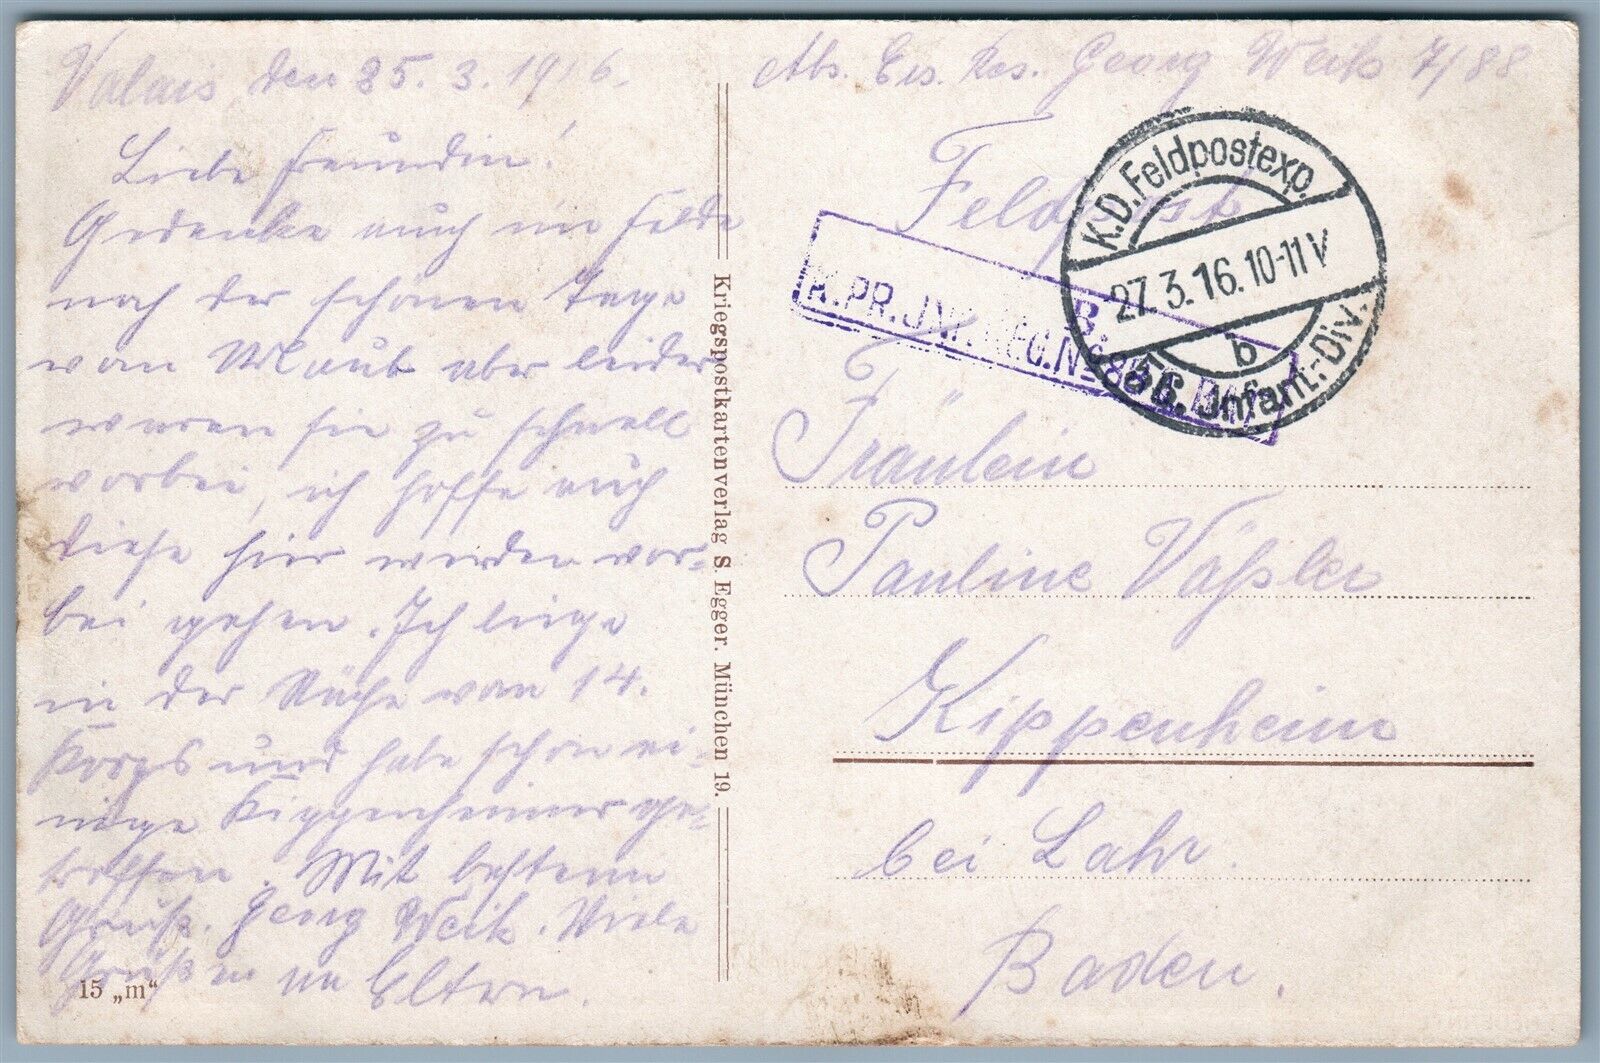 Valais, den 25. 3. 1916.
Liebe Freundin!
Gedenke auch im Felde
noch der schönen Tage
von Urlaub aber leider
waren sie zu schnell
vorbei, ich hoffe auch
diese hier werden vor-
bei gehen. Ich liege
in der Nähe von 14.
Korps und habe schon ei-
nige Kippenheimer ge-
troffen. Mit bestem
Gruß. Georg Weik. Viele
Grüße an Eltern.
15 „m“
Kriegspostkartenverlag S. Egger. München 19.
Abs. Ers. Res. Georg Weik 7/88
Feldpost
K.D. Feldpostexp.
27.3.16.10-11V
b
56. Infant.-Div.
B.
K.PR.INF.REG.No 88
Fräulein
Pauline Väßler
Kippenheim
bei Lahr.
Baden.